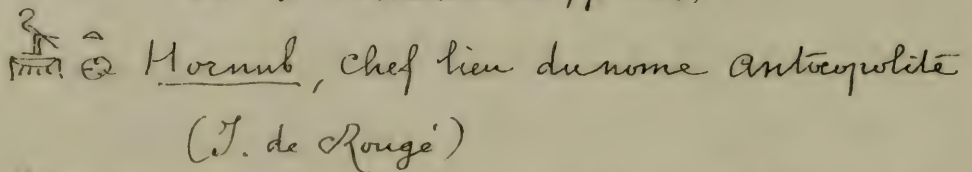 Hornub, chef lieu du nome antæopolite
(J. de Rougé)